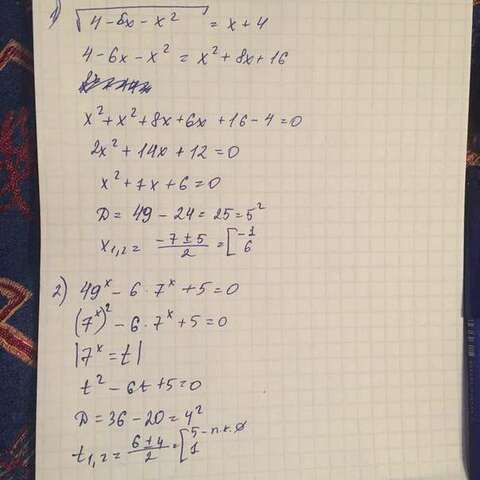 1) √(4-6x-x²) = x+4
4-6x-x² = x²+8x+16
x²+x²+8x+6x+16-4=0
2x²+14x+12=0
x²+7x+6=0
D= 49-24=25=5²
x₁,₂= (-7±5)/2 =[-1 6
2) 49ˣ-6·7ˣ+5=0
(7ˣ)²-6·7ˣ+5=0
|7ˣ=t|
t²-6t+5=0
D=36-20=4²
t₁,₂= (6±4)/2 =[5-п.к.∅ 1